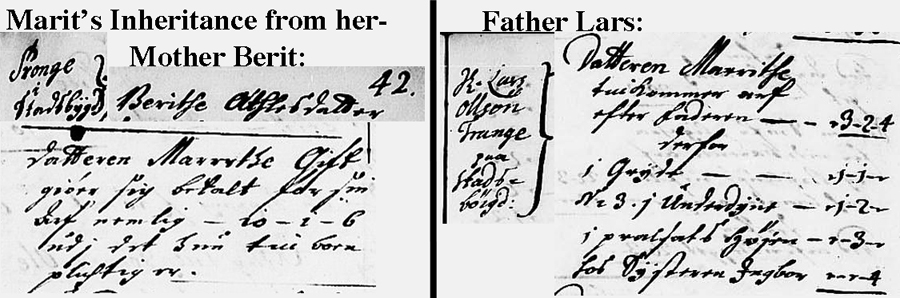 Marit's Inheritance from her-
Mother Berit:
Pronge
i
Stadsbÿgd,
Berithe Athlesdatter
42.
datteren Marrethe Gift
giöer sig betalt for sin
Arf nemlig – 10 – 1 – 6
udj det
plichtig er.
Father Lars:
Lars
Olsön
paa
Stads-
böigd:
Datteren Marrithe
tilkommer arf
efter faderen — – 3-2-4
derfor
1 Gryde — —
No 3. j Underdyne –
j
hos Systeren Ingbor